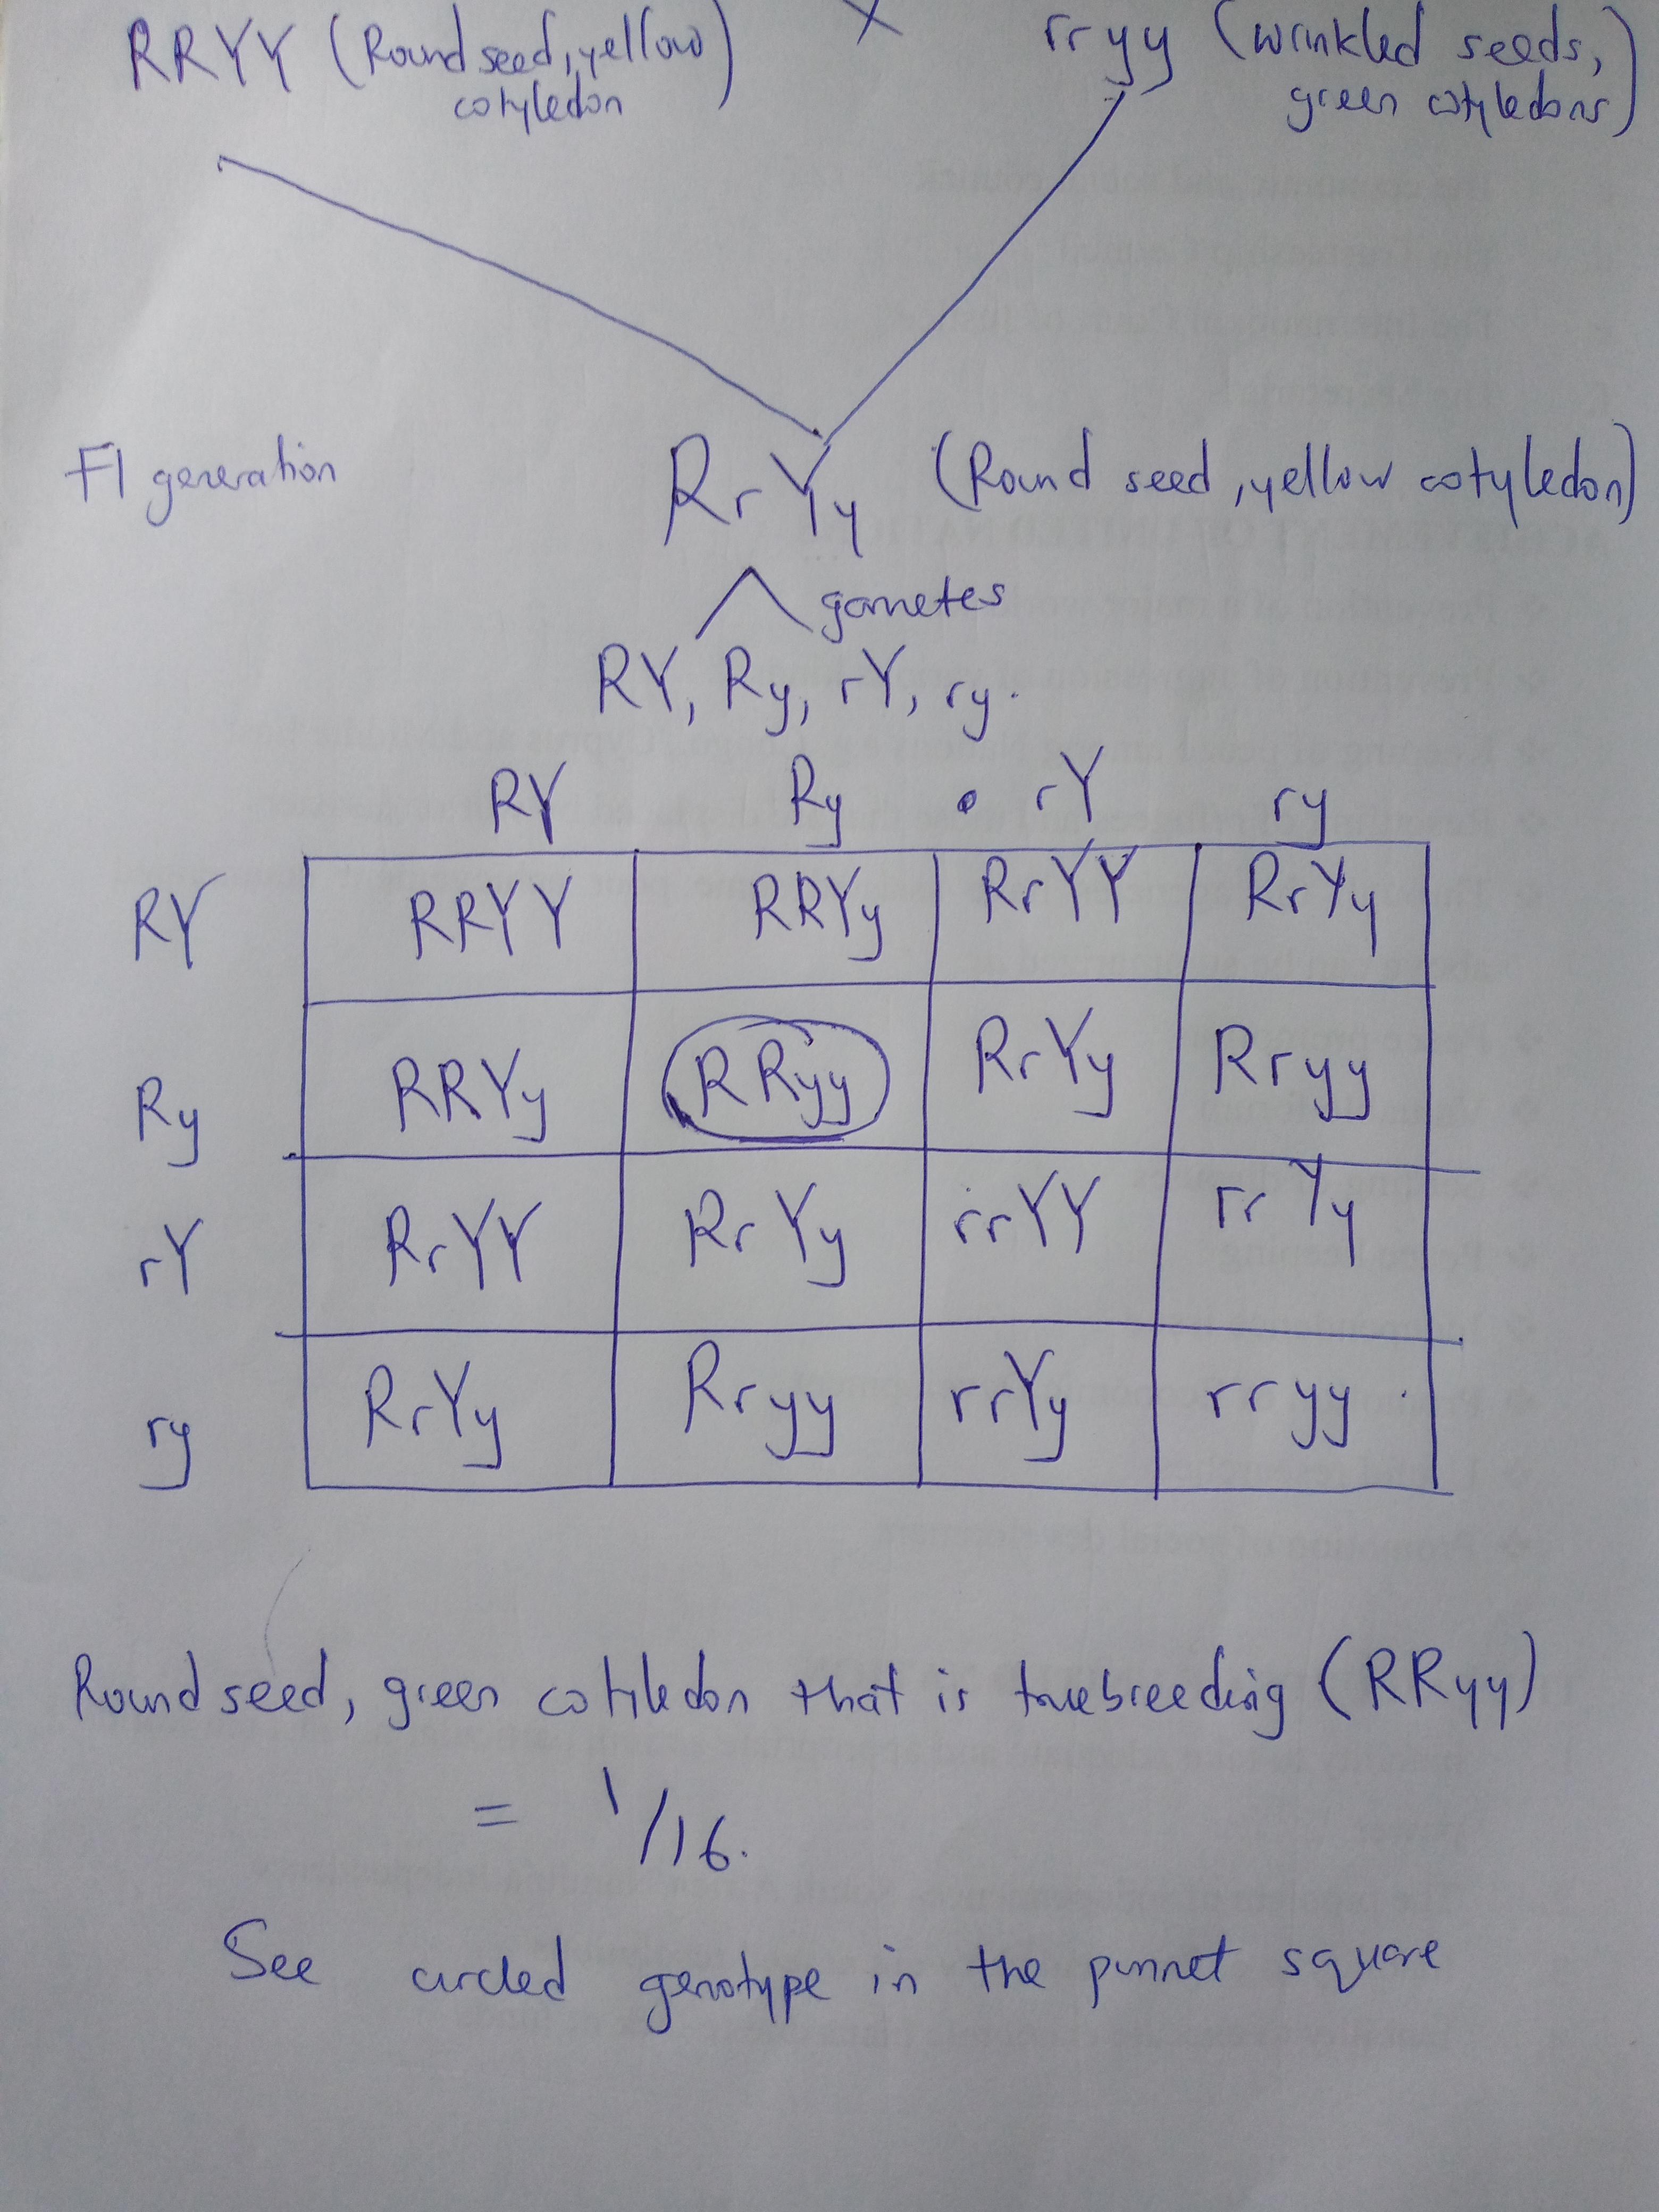 RRYY (Round seed, yellow cotyledon) X rryy (wrinkled seeds, green cotyledons)
F1 generation RrYy (Round seed, yellow cotyledon)
gametes
RY, Ry, rY, ry.
RY Ry rY ry
RY RRYY RRYy RrYY RrYy
Ry RRYy RRyy RrYy Rryy
rY RrYY RrYy rrYY rrYy
ry RrYy Rryy rrYy rryy
Round seed, green cotyledon that is truebreeding (RRyy)
= 1/16.
See circled genotype in the punnet square